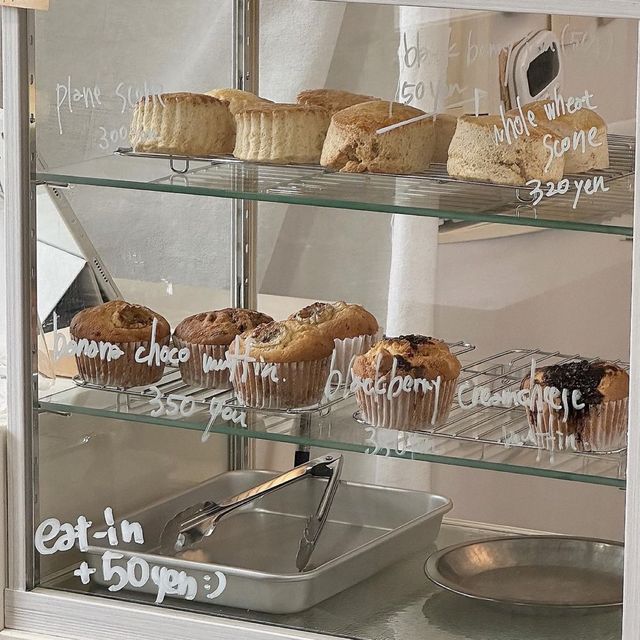 plane scone
300yen
50yen
whole wheat
scone
320yen
banana choco muffin.
350yen
blackberry creamcheese
muffin
eat-in
+50yen :)